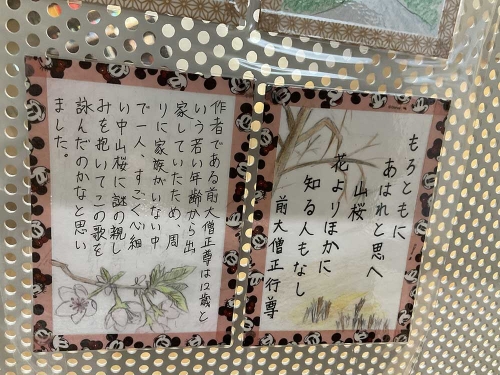 もろともに
あはれと思へ
山桜
花よりほかに
知る人もなし
前大僧正行尊
作者である前大僧正尊は12歳と
いう若い年齢から出
家していたため、周
りに家族がいない中
で一人、すごく心細
い中山桜に謎の親し
みを抱いてこの歌を
詠んだのかなと思い
ました。